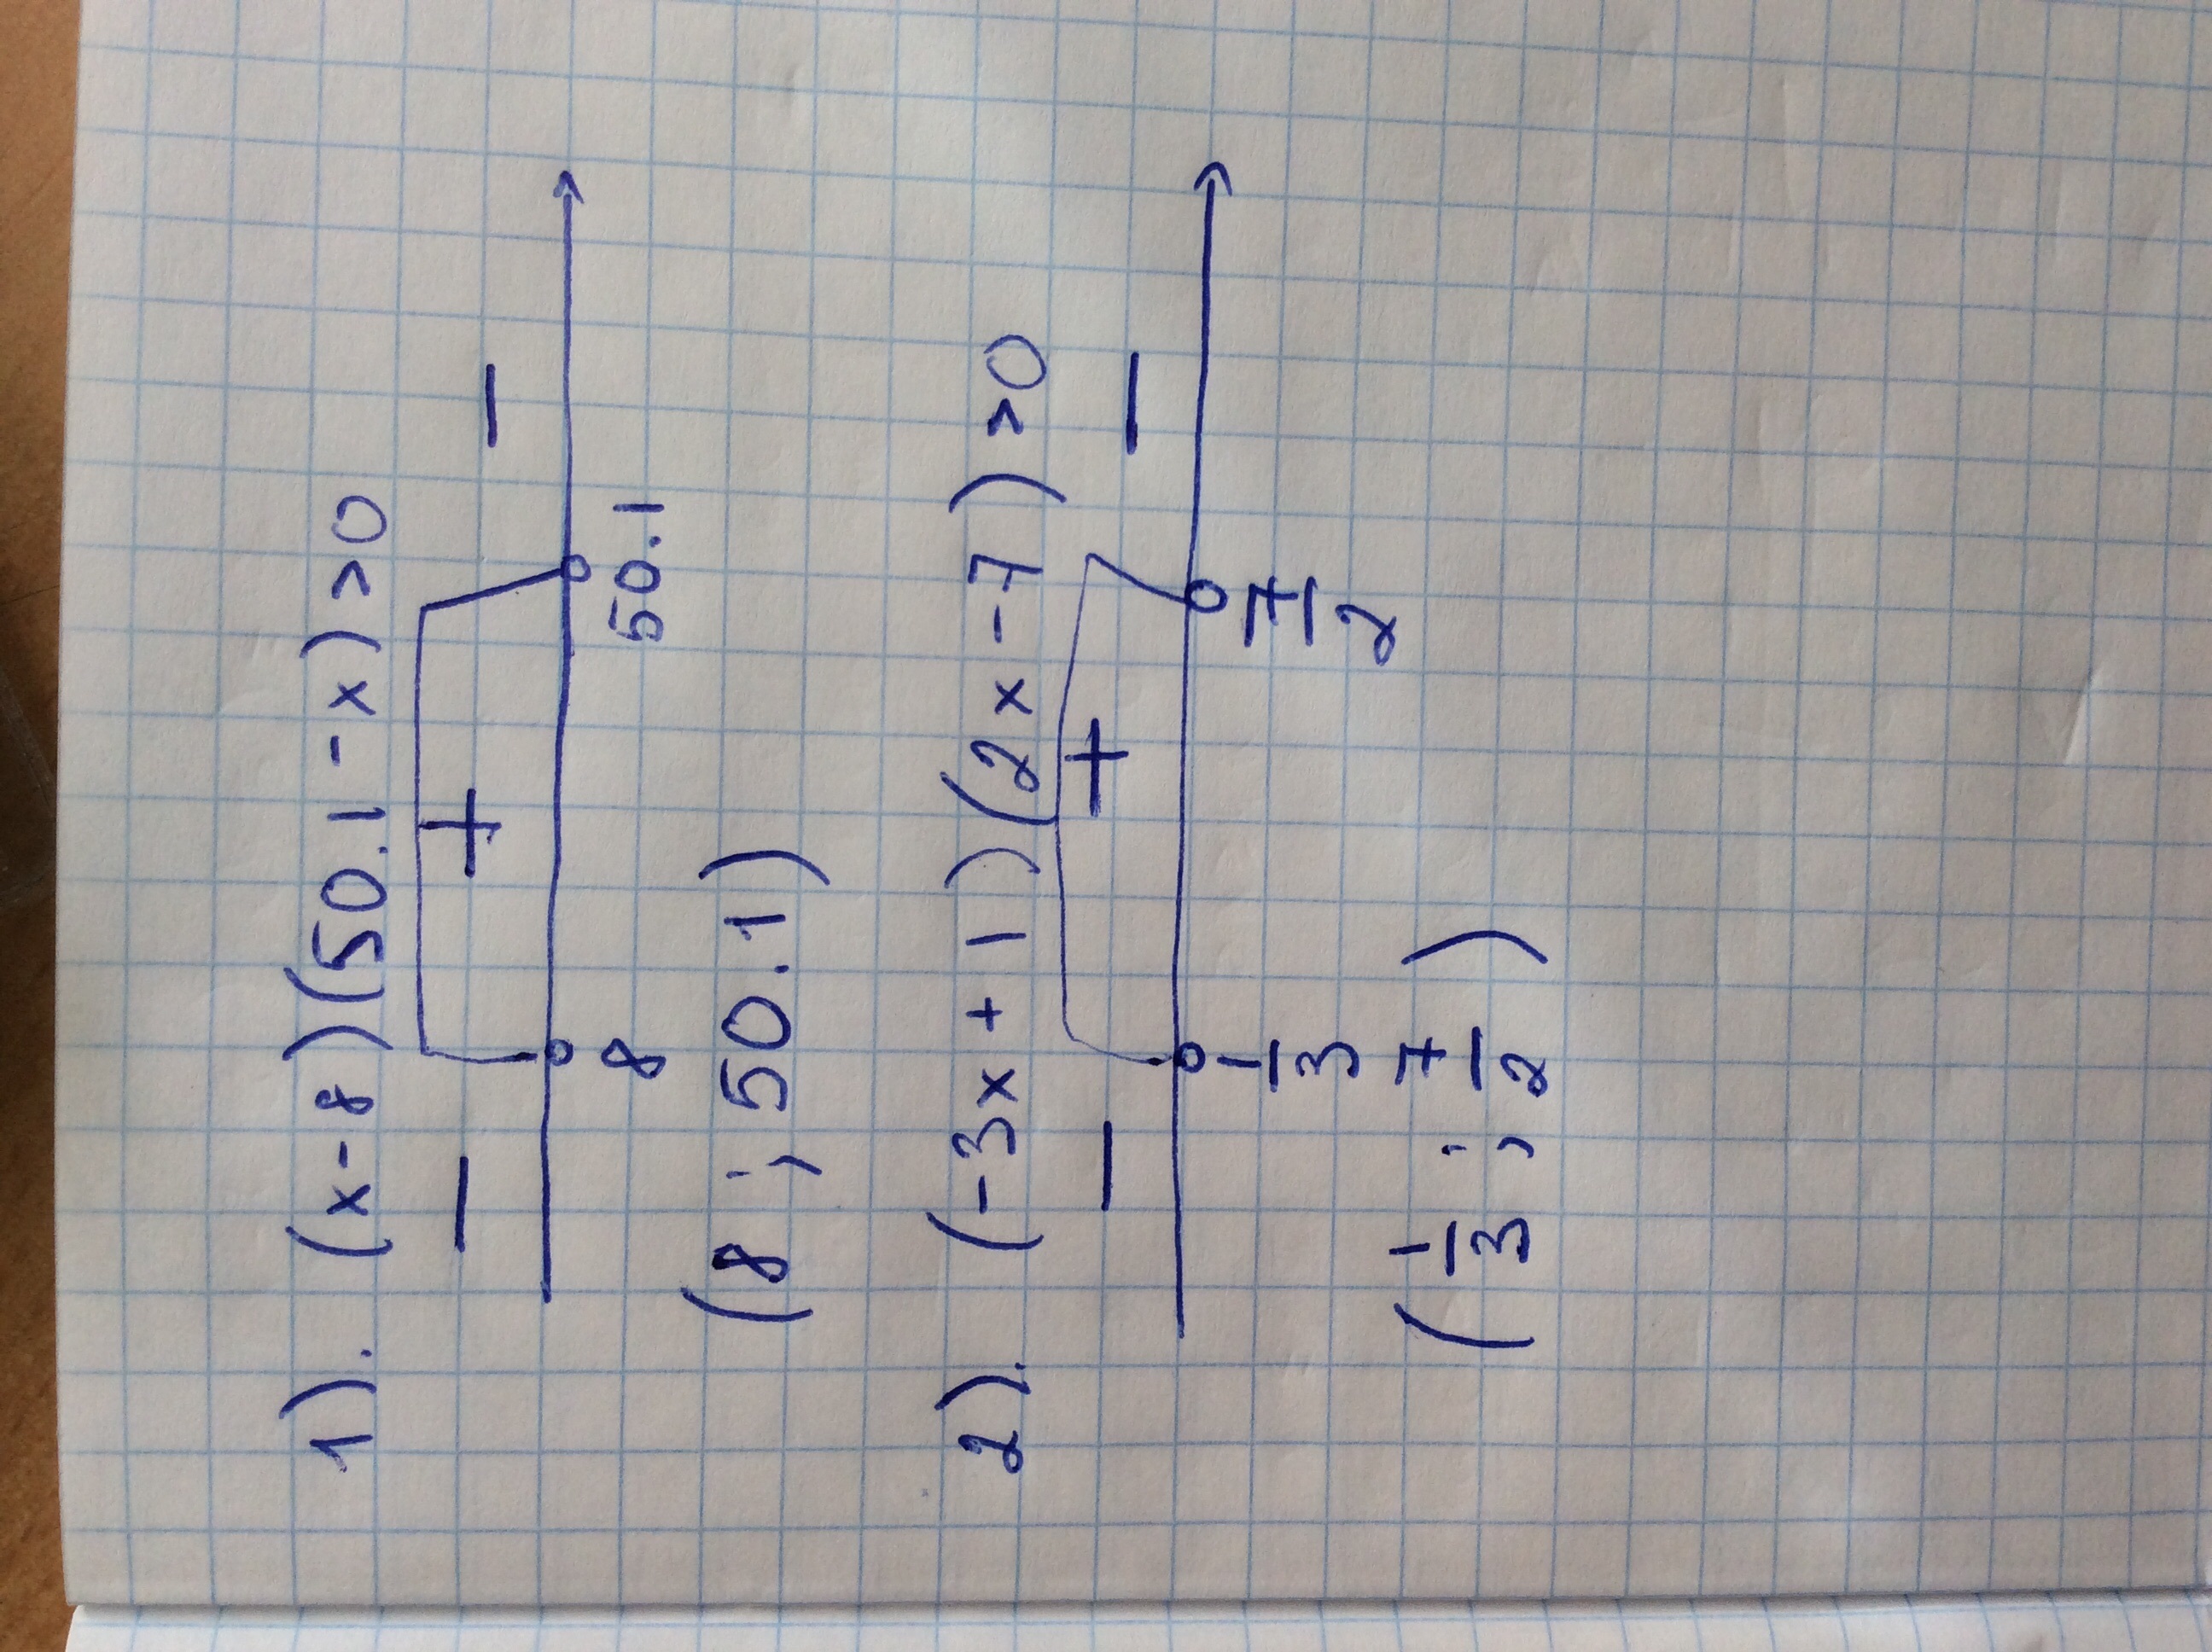 1). (x-8)(50.1-x)>0
- + -
8 50.1
(8; 50.1)
2). (-3x+1)(2x-7)>0
- + -
1/3 7/2
(1/3; 7/2)